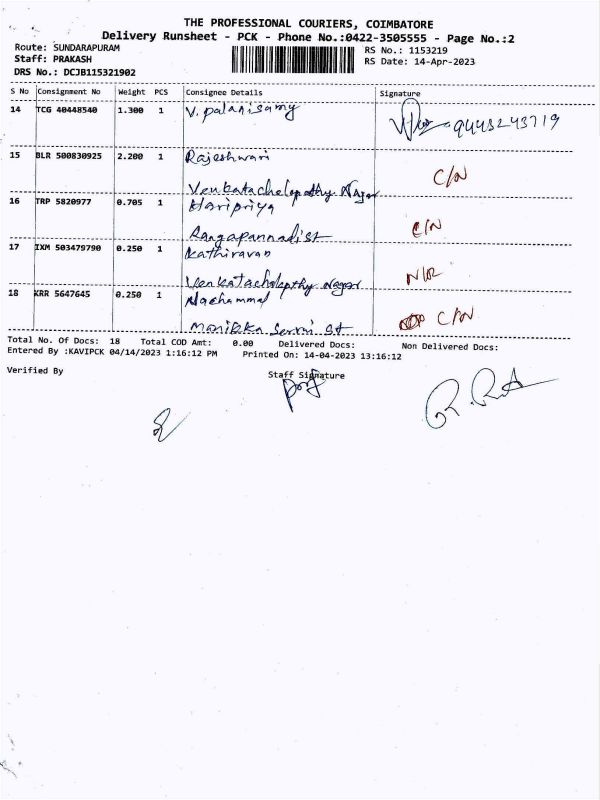 THE PROFESSIONAL COURIERS, COIMBATORE
Delivery Runsheet - PCK - Phone No.:0422-3505555 - Page No.:2
Route: SUNDARAPURAM
Staff: PRAKASH
DRS No.: DCJB115321902
RS No.: 1153219
RS Date: 14-Apr-2023
S No Consignment No Weight PCS Consignee Details Signature
14 TCG 40448540 1.300 1 V. palanisamy 9443243719
15 BLR 500830925 2.200 1 Rajeshwari
Venkatachelapathy Nagar C/N
16 TRP 5820977 0.705 1 Haripriya
Rangapannadist C/N
17 IXM 503479790 0.250 1 Kathiravan
Venkatachalapthy Nagar N/R
18 KRR 5647645 0.250 1 Nachammal
Manikka Servai st C/N
Total No. Of Docs: 18 Total COD Amt: 0.00 Delivered Docs: Non Delivered Docs:
Entered By :KAVIPCK 04/14/2023 1:16:12 PM Printed On: 14-04-2023 13:16:12
Verified By Staff Signature